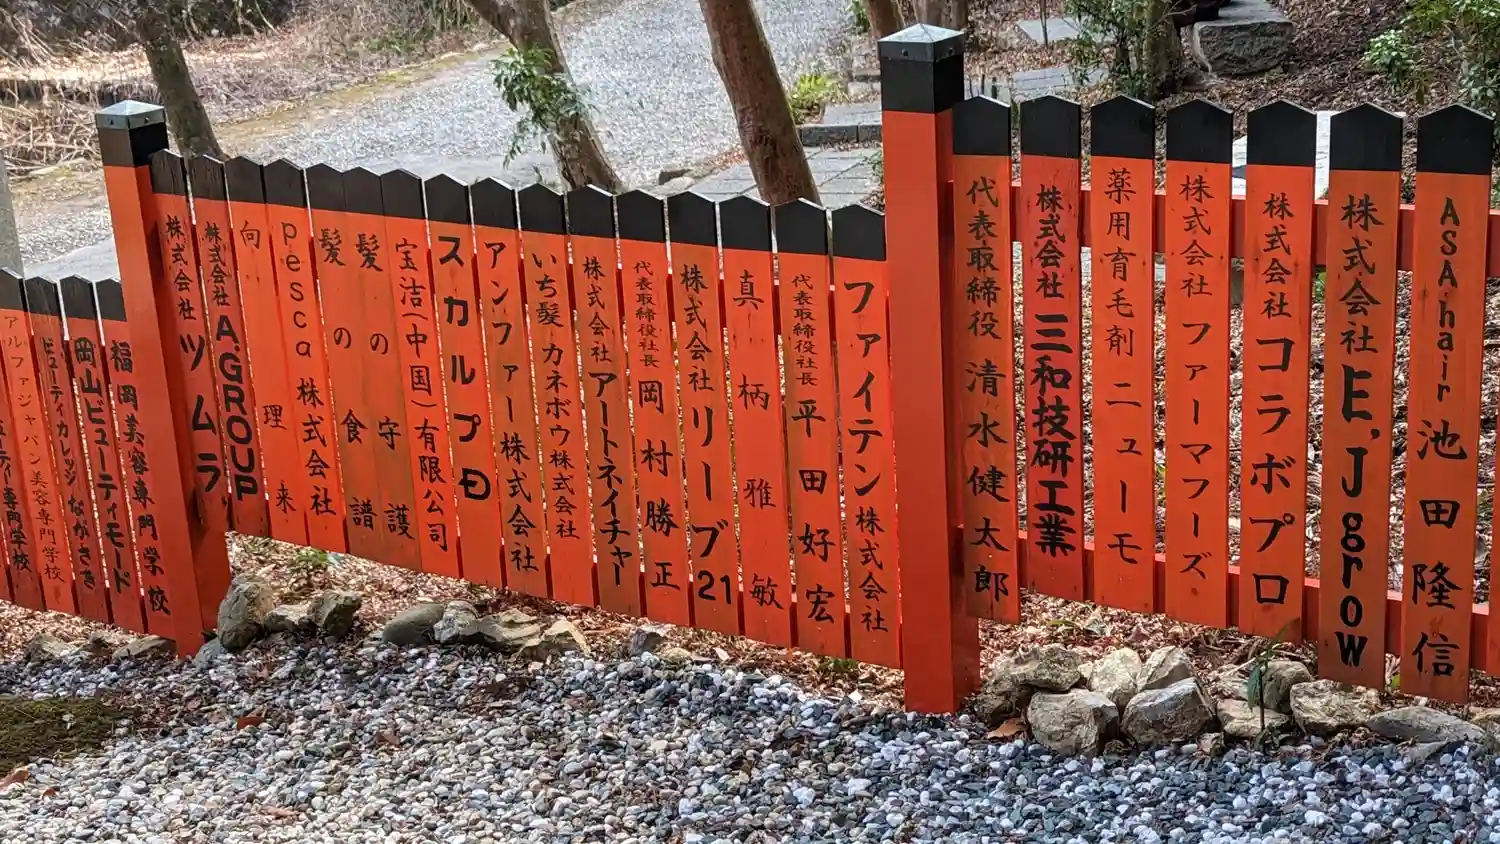 ASA hair 池田隆信
株式会社 E,Jgrow
株式会社コラボプロ
株式会社ファーマフーズ
薬用育毛剤 ニューモ
株式会社 三和技研工業
代表取締役 清水健太郎
ファイテン株式会社
代表取締役社長 平田好宏
真柄雅敏
株式会社リーブ21
代表取締役社長 岡村勝正
株式会社アートネイチャー
いち髪 カネボウ株式会社
アンファー株式会社
スカルプD
宝洁(中国)有限公司
髪の守護
髪の食譜
pesca 株式会社
向理来
株式会社 AGROUP
株式会社 ツムラ
福岡美容専門学校
岡山ビューティモード
ビューティカレッジながさき
アルファジャパン美容専門学校
ティー専門学校